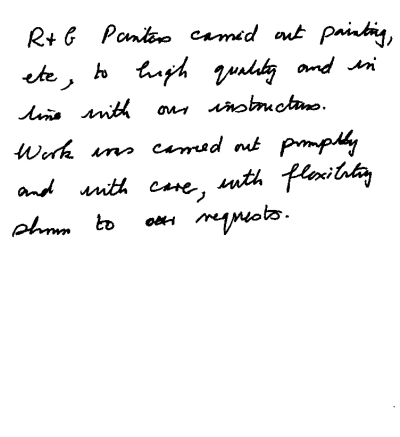 R+G Painters carried out painting,
etc, to high quality and in
line with our instructions.
Work was carried out promptly
and with care, with flexibility
shown to our requests.